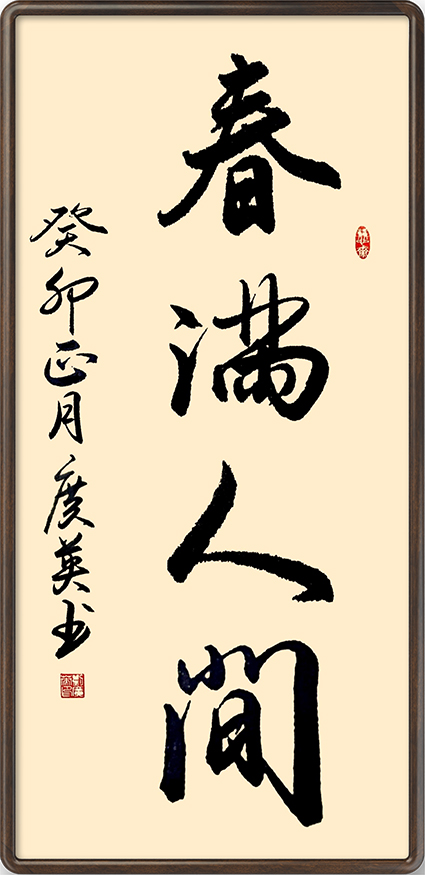 春滿人間
癸卯正月廣英书